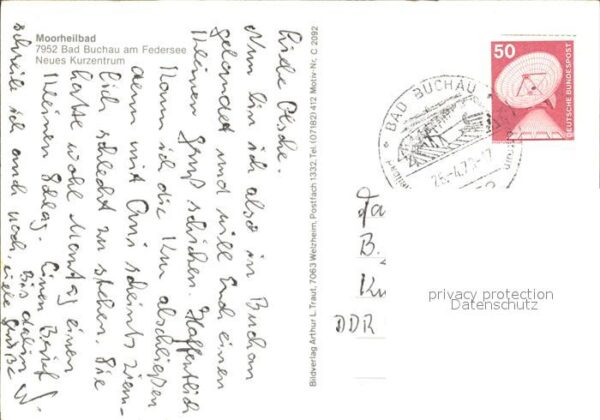 Moorheilbad
7952 Bad Buchau am Federsee
Neues Kurzentrum
Liebe Cläre.
Nun bin ich also in Buchau
gelandet und will Euch einen
kleinen Gruß schicken. Hoffentlich
kann ich die Kur abschließen
denn mit Omi scheints ziem-
lich schlecht zu stehen. Sie
hatte wohl Montag einen
kleinen Schlag. Einen Brief
schreib ich auch noch, Bis dahin
viele Grüße
Bildverlag Arthur L. Traut, 7063 Welzheim, Postfach 1332, Tel. (07182) 412 Motiv-Nr. C 2092
50
DEUTSCHE BUNDESPOST
BAD BUCHAU
B.
DDR
privacy protection
Datenschutz